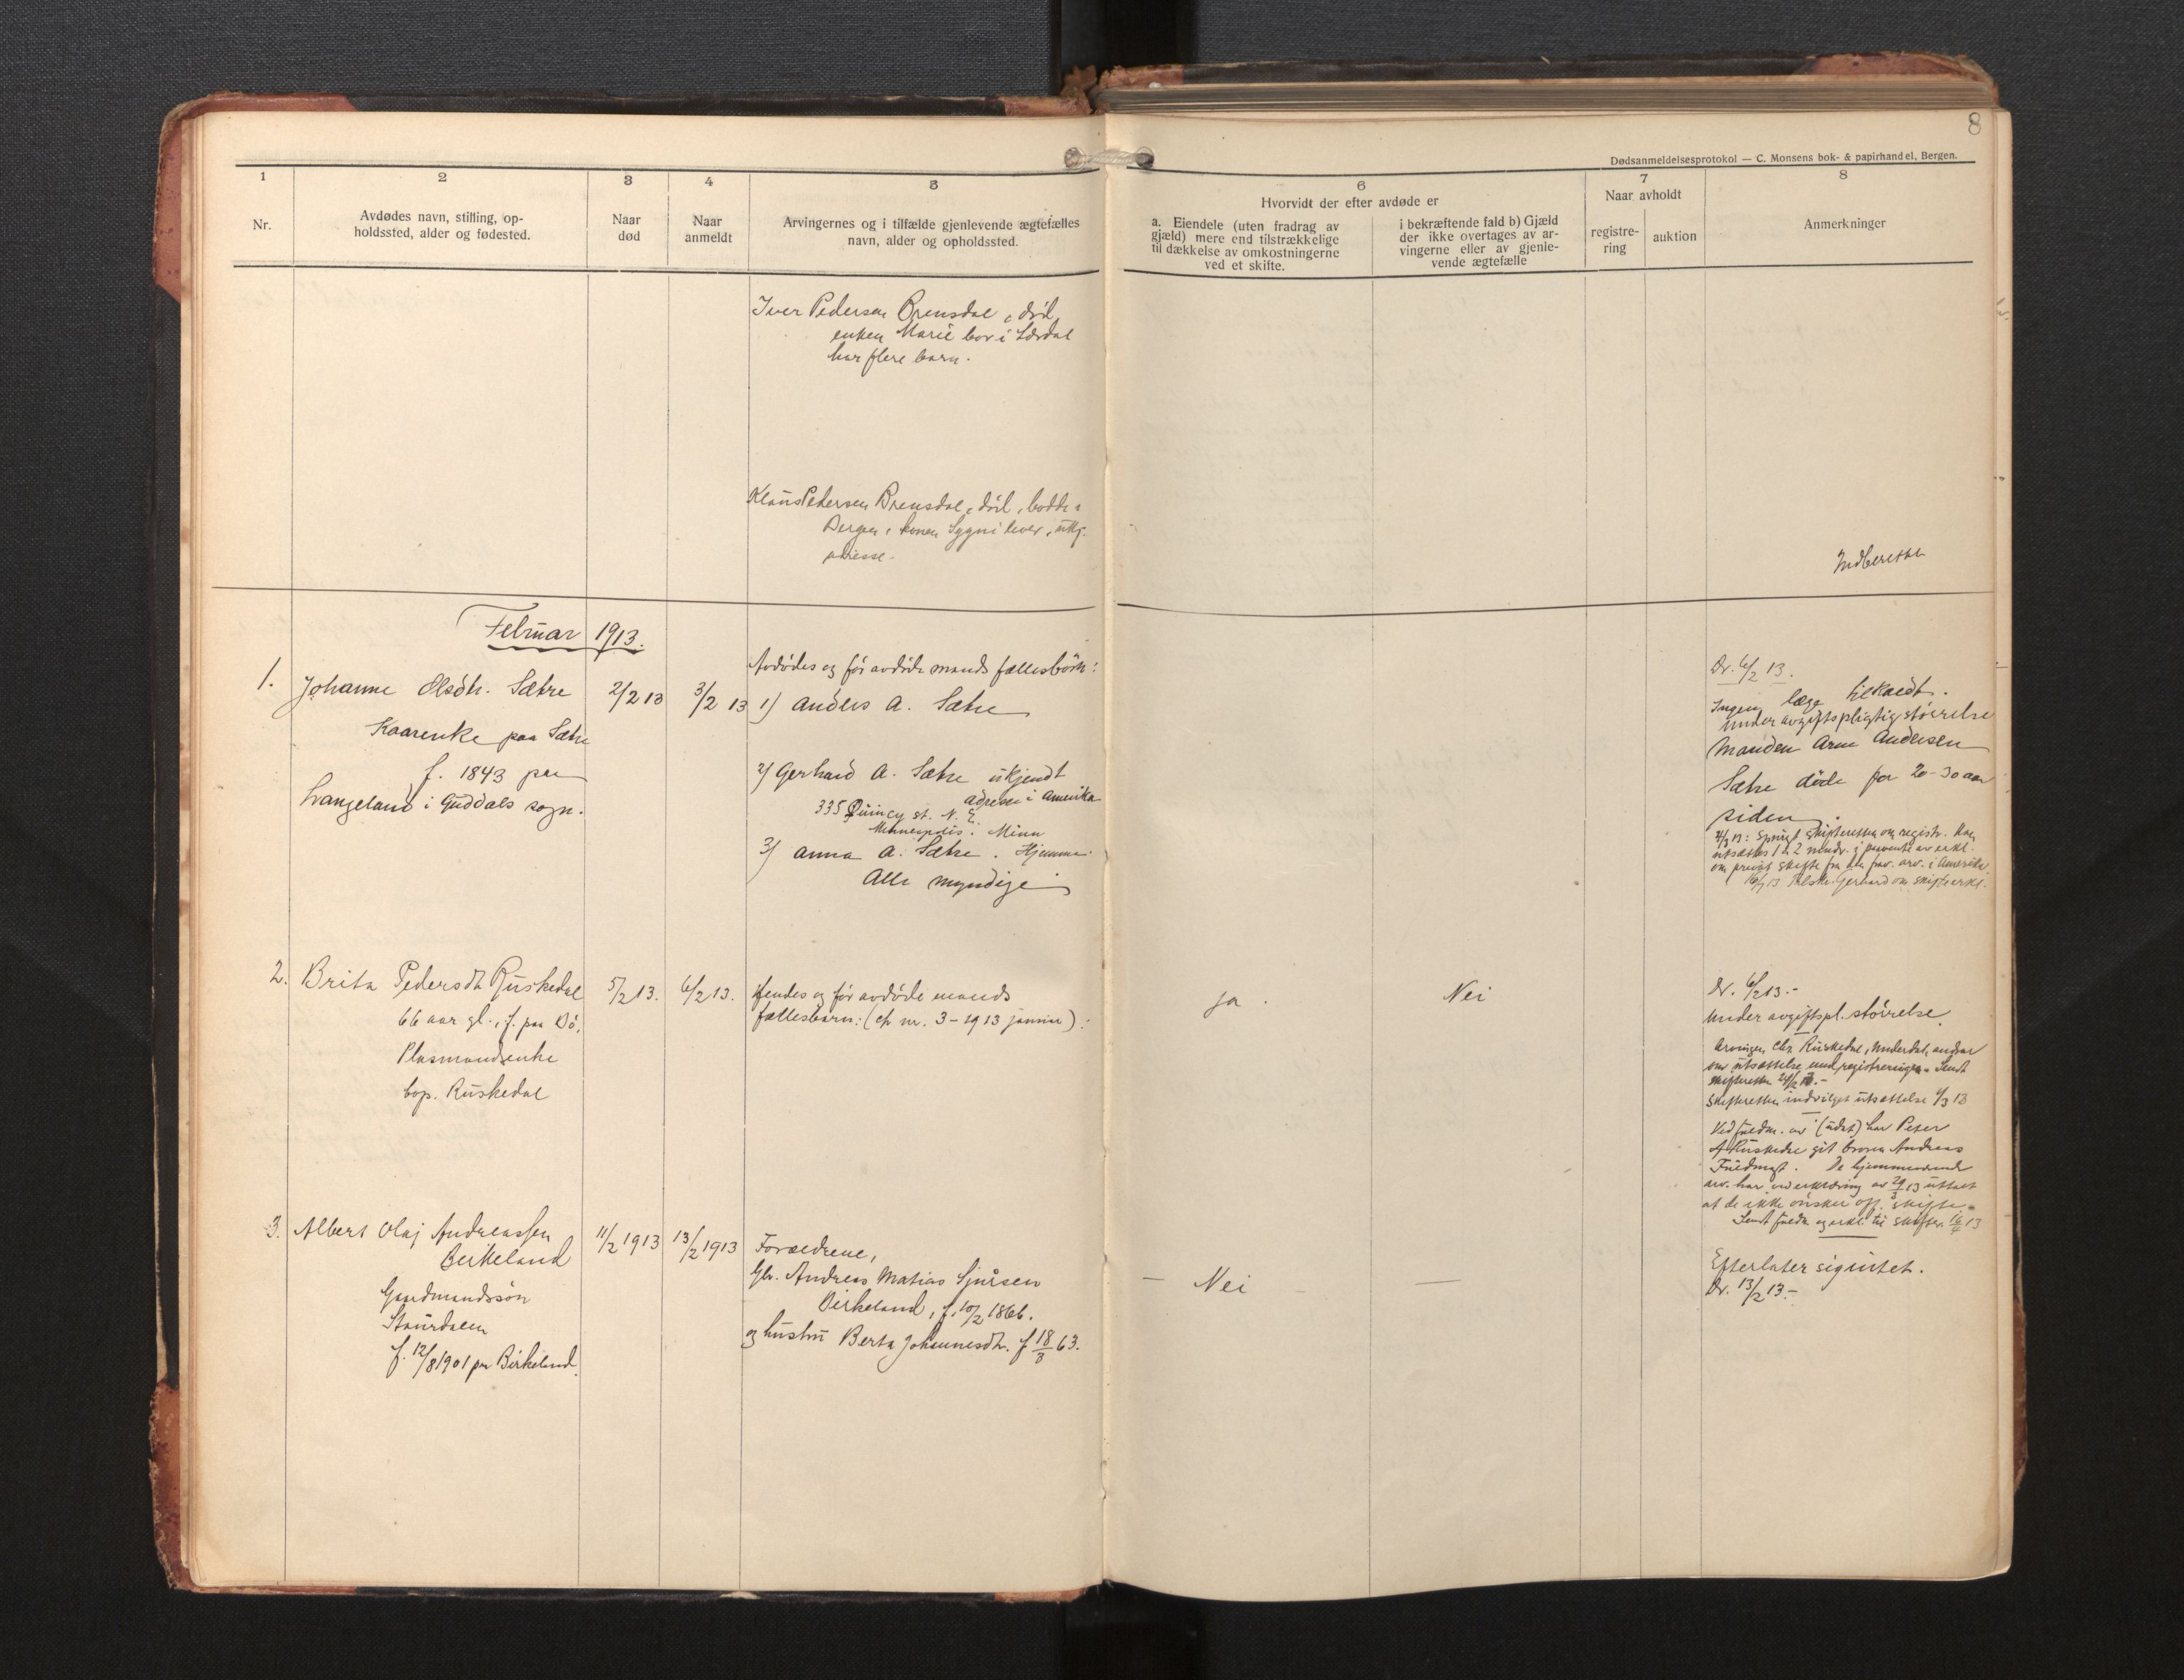 8
Dødsanmeldelsesprotokol — C. Monsens bok- & papirhandel, Bergen.
1
2
3
4
5
6
7
8
Nr.
Avdødes navn, stilling, op-
holdssted, alder og fødested.
Naar
død
Naar
anmeldt
Arvingernes og i tilfælde gjenlevende ægtefælles
navn, alder og opholdssted.
Hvorvidt der efter avdøde er
a. Eiendele (uten fradrag av
gjæld) mere end tilstrækkelige
til dækkelse av omkostningerne
ved et skifte.
i bekræftende fald b) Gjæld
der ikke overtages av ar-
vingerne eller av gjenle-
vende ægtefælle
Naar avholdt
registre-
ring
auktion
Anmerkninger
Iver Pedersen Brensdal, död,
enken Marie bor i Lærdal
har flere barn.
Klaus Pedersen Brensdal, död, bodde i
Bergen, konen Sygni lever, ukj.
adresse.
Indberettet
Februar 1913.
1. Johanne Olsdtr. Sætre
Kaarenke paa Sætre
f. 1843 paa
Langeland i Guddals sogn.
2/2 13
3/2 13
Avdödes og för avdöde mands fællesbörn:
1) Anders A. Sætre
2) Gerhard A. Sætre ukjendt
adresse i Amerika
335 Quincy st. N. E.
Minneapolis. Minn
3) Anna A. Sætre. Hjemme.
Alle myndige
Dr. 6/2 13.
Ingen læge tilkaldt.
Under avgiftspligtig störrelse
Manden Arne Andersen
Sætre döde for 20-30 aar
siden.
utsættes 1 à 2 mndr. i påvente av erkl.
om privat skifte fra den frav. arv. i Amerika.
Gerhard om skifteerkl.
2. Brita Pedersdt Ruskedal
66 aar gl., f. paa Bö.
Plasmandsenke
bop. Ruskedal
5/2 13.
6/2 13.
Hendes og för avdöde mands
fællesbarn: (cfr nr. 3 - 1913 januar):
ja.
Nei
Dr. 6/2 13.-
Under avgiftspl. störrelse.
Arvingen Chr. Ruskedal, Underdal, andrar
om utsættelse med registreringen. Sendt
skifteretten
Skifteretten indvilget utsættelse 4/3 13
Ved fuldm. av (udat) har Peter
A Ruskedal git broren Andreas
Fuldmagt. De hjemmeværende
arv. har ved erklæring av 29/3 13 uttalt
at de ikke önsker off. skifte.
Sendt fuldm. og erkl. til skifter. 16/4 13
3. Albert Olaj Andreassen
Birkeland
Gaardmandssön
Staurdalen
f. 12/8 1901 paa Birkeland.
11/2 1913
13/2 1913
Forældrene,
Gbr. Andreas Matias Sjursen
Birkeland, f. 10/2 1866.
og hustru Berta Johannesdtr. f 18/8 63.
— Nei —
—
Efterlater sig intet.
Dr. 13/2 13.-